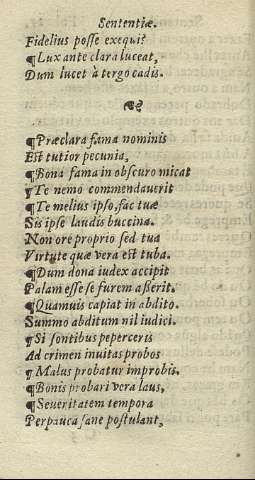 Sententiæ.
Fidelius posse exequi?
¶Lux ante clara luceat,
Dum lucet à tergo cadis.
¶Præclara fama nominis
Est tutior pecunia,
¶Bona fama in obscuro micat
¶Te nemo commendauerit
¶Te melius ipso, fac tuæ
Sis ipse laudis buccina.
Non ore proprio sed tua
Virtute quæ vera est tuba.
¶Dum dona iudex accipit
Palam esse se furem aßerit.
¶Quamuis capiat in abdito.
Summo abditum nil iudici.
¶Si sontibus peperceris
Ad crimen inuitas probos
¶Malus probatur improbis.
¶Bonis probari vera laus,
¶Seueritatem tempora
Perpauca sane postulant,